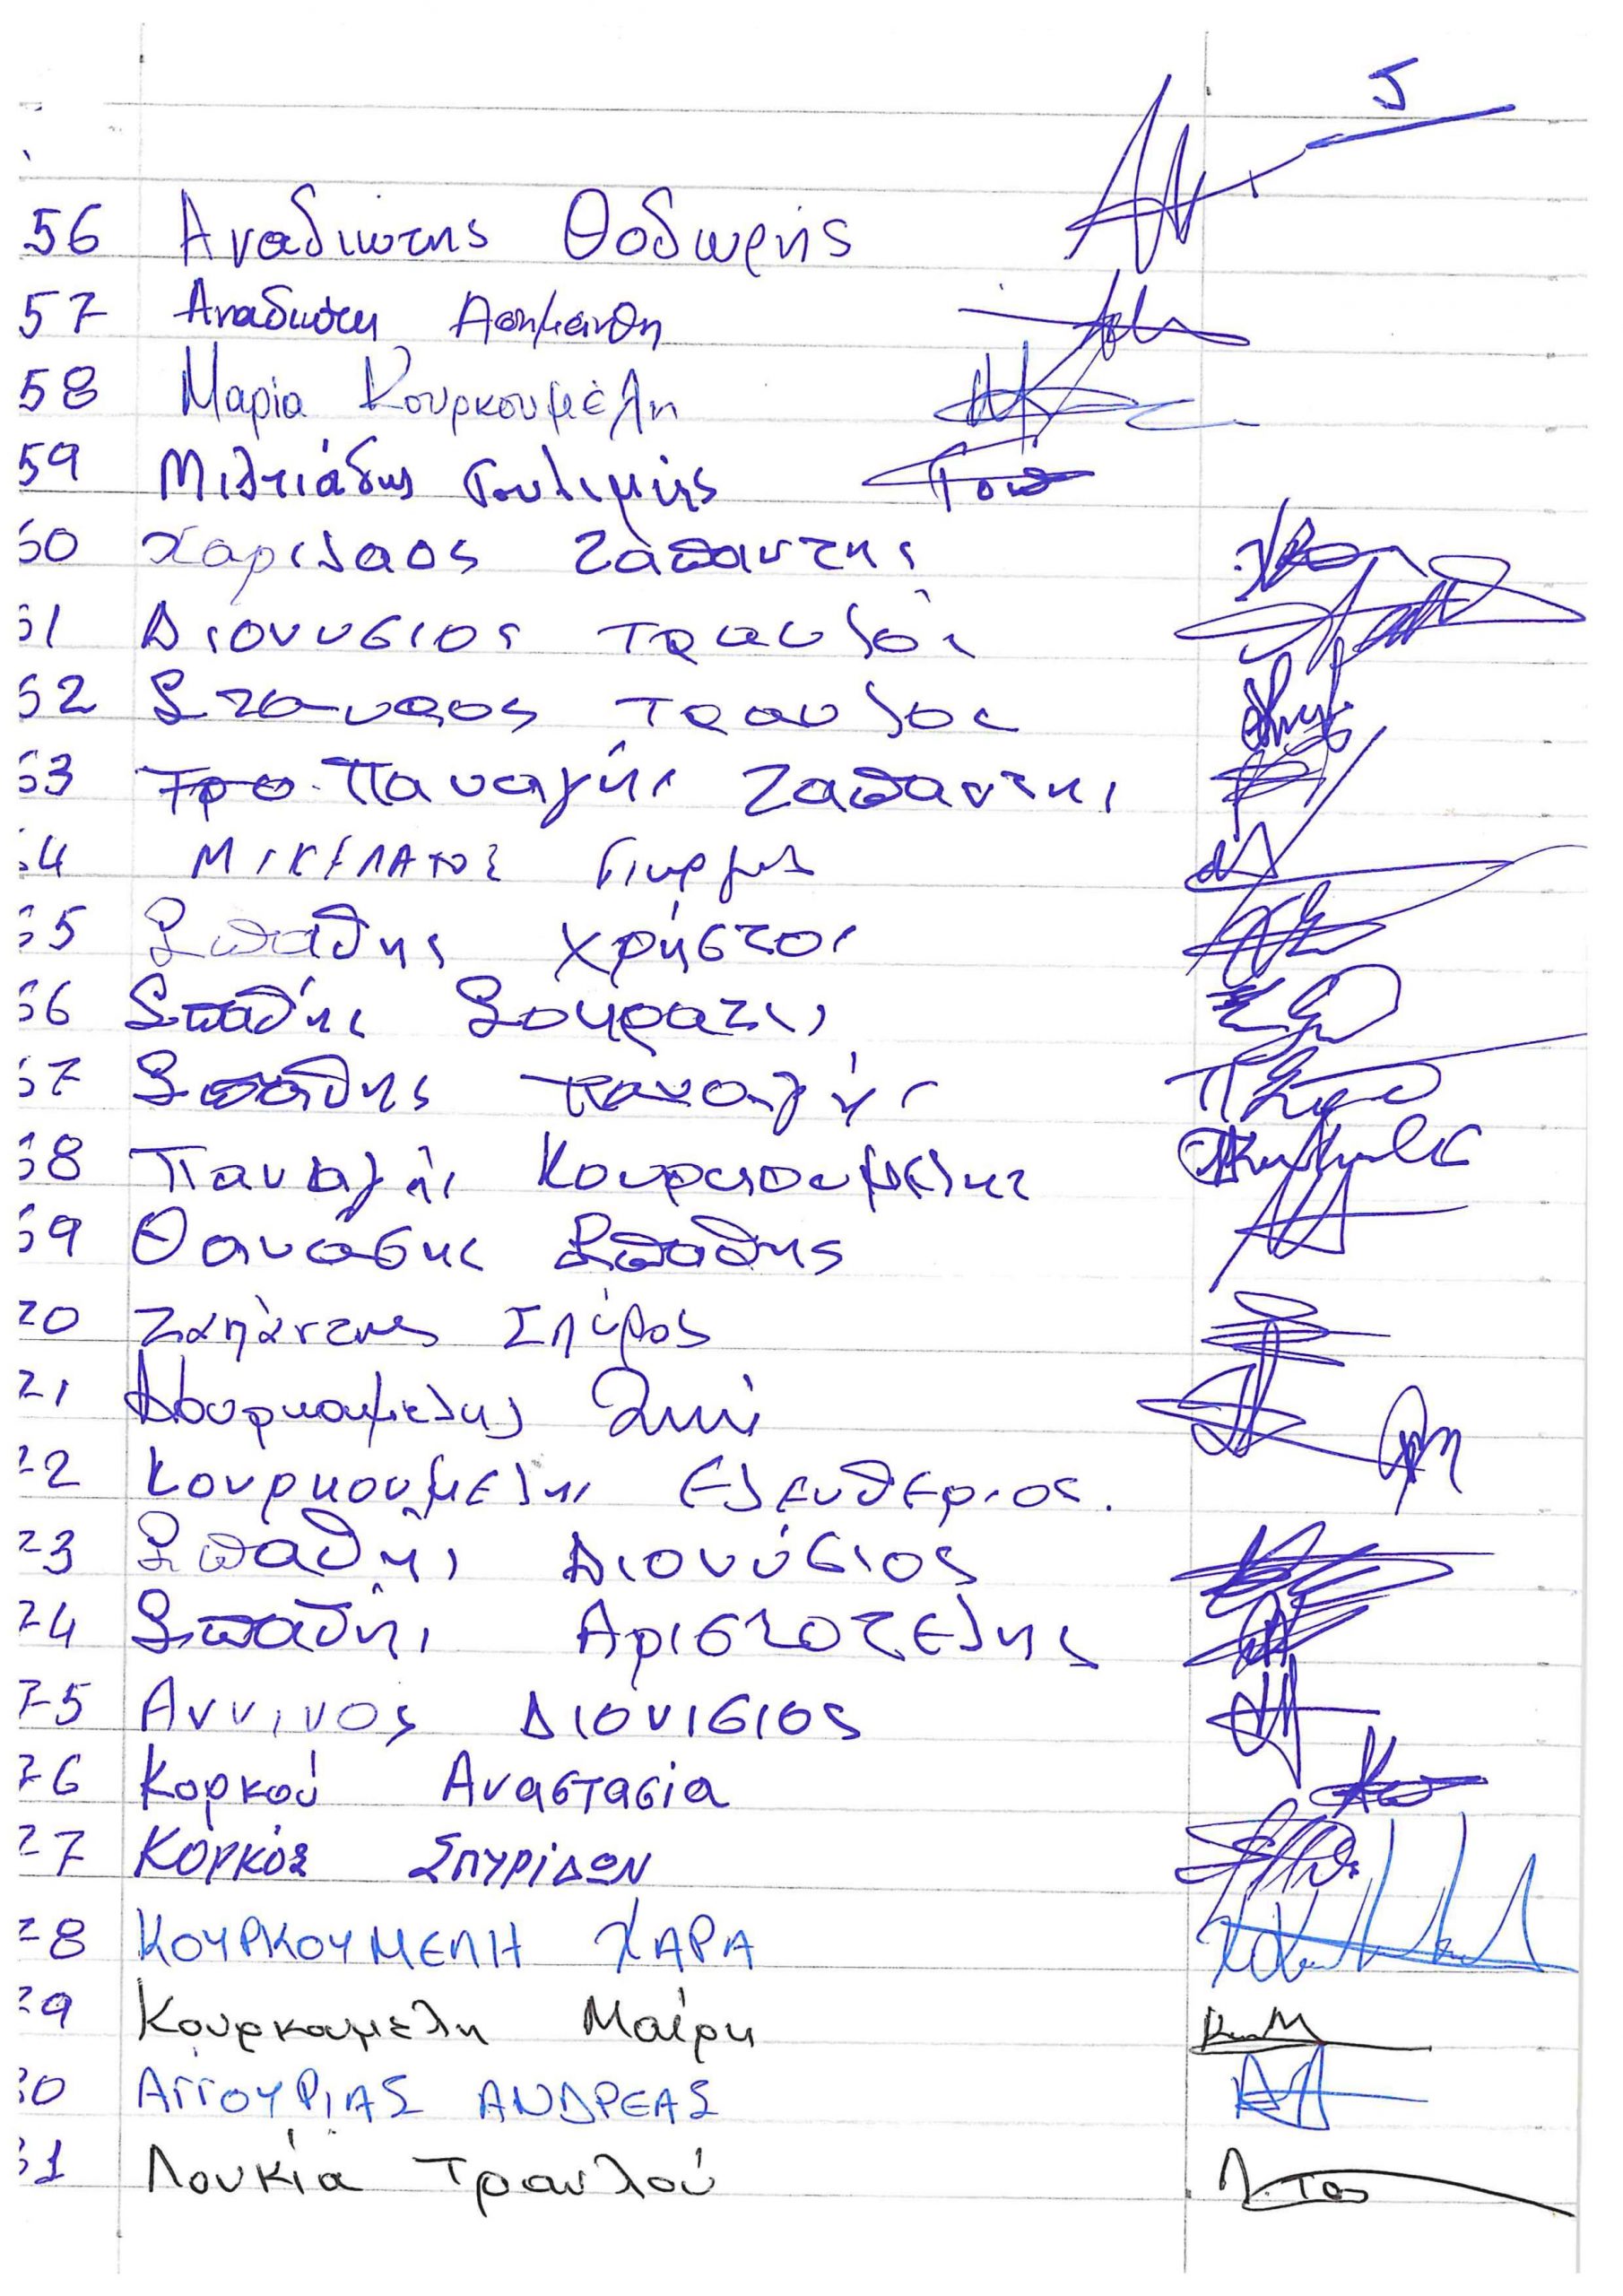 5
56 Αναδιώτης Θοδωρής
57 Αναδιώτη Ασημανθη
58 Μαρία Κουρκουμέλη
59 Μιλτιάδης
60 Χαριλαος Ζαπαντης
61 Διονυσιος Τραυλός
62 Σταυρος Τραυλος
63 Παναγής Ζαπαντης
64 ΜΙΚΕΛΑΤΟΣ Γιωργος
65 Σπαθης Χρήστος
66 Σπαθής Σωκρατης
67 Σπαθης Παναγής
68 Παναγής Κουρκουμελης
69 Θανάσης Σπαθης
70 Ζαπάντης Σπύρος
71 Κουρκουμελης
72 Κουρκουμελης Ελευθεριος.
73 Σπαθής Διονύσιος
74 Σπαθής Αριστοτελης
75 Αννινος Διονισιος
76 Κορκού Αναστασία
77 ΚΟΡΚΌΣ ΣΠΥΡΊΔΩΝ
78 ΚΟΥΡΚΟΥΜΕΛΗ ΧΑΡΑ
79 Κουρκουμελη Μαίρη
80 ΑΓΓΟΥΡΙΑΣ ΑΝΔΡΕΑΣ
81 Λουκία Τραυλού